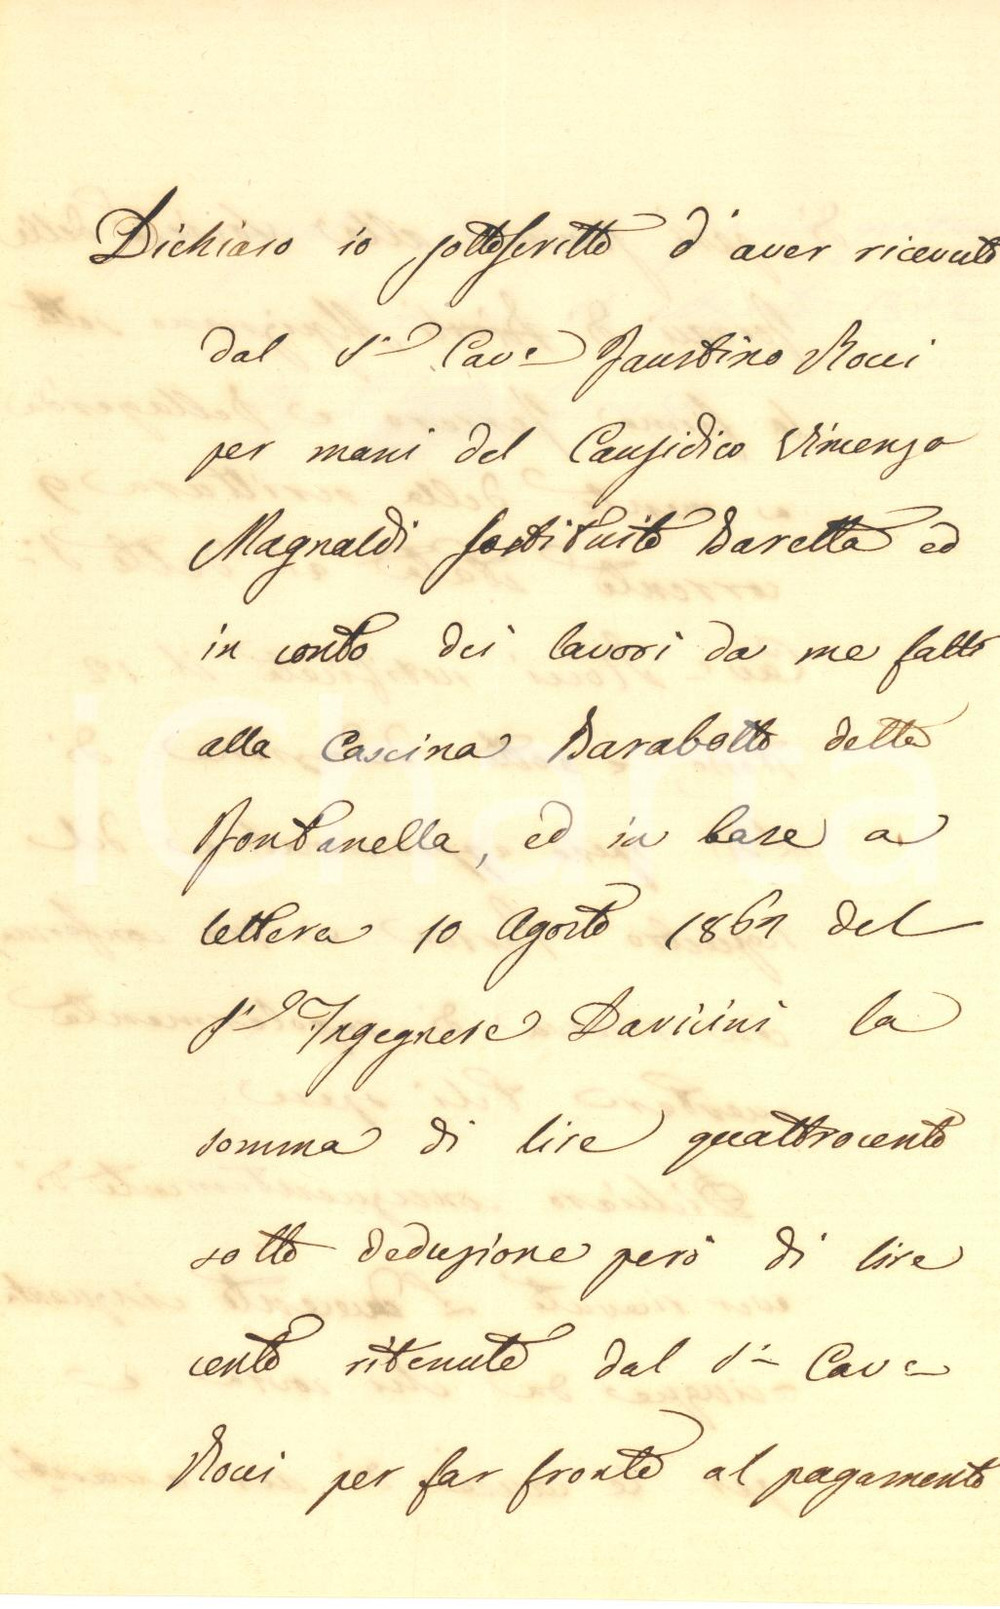 Dichiaro io sottoscritto d'aver ricevuto
dal Sr Cave Faustino Rocci
per mani del Causidico Vincenzo
Magnaldi sostituito Baretta ed
in conto dei lavori da me fatti
alla Cascina Barabotto detta
Fontanella, ed in base a
lettera 10 Agosto 1867 del
Sr Ingegnere Davicini la
somma di lire quattrocento
sotto deduzione però di lire
cento ritenute dal Sr Cave
Rocci per far fronte al pagamento
iCharta